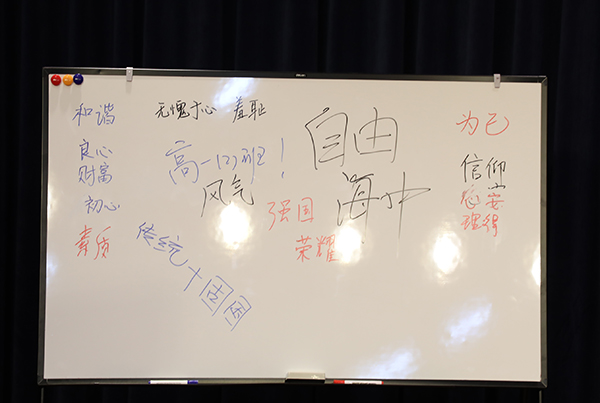 和谐
无愧于心 羞耻
自由
为己
良心
财富
高一(2)班！
风气
信仰
初心
强国
海中
心安
理得
素质
荣耀
传统